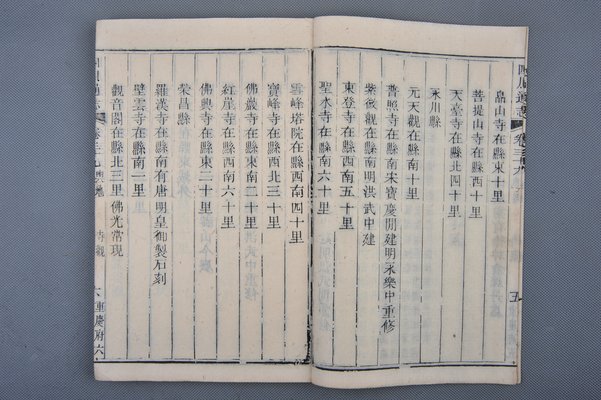 四川通志
卷三十九
五
昌山寺在縣東十里
菩提山寺在縣西十里
天臺寺在縣北四十里
永川縣
元天觀在縣南
普照寺在縣南宋寶慶間建明永樂中重修
紫微觀在縣南明洪武中建
東登寺在縣西南五十里
聖水寺在縣南六十里
雲峰塔院在縣西南四十里
寶峰寺在縣西北三十里
佛嚴寺在縣南二十里
紅崖寺在縣西南六十里
佛興寺在縣東二十里
榮昌縣
羅漢寺在縣南有唐明皇御製石刻
壁雲寺在縣南一里
觀音閣在縣北三里佛光常現
卷三十九
輿地
寺觀
六
重慶府六